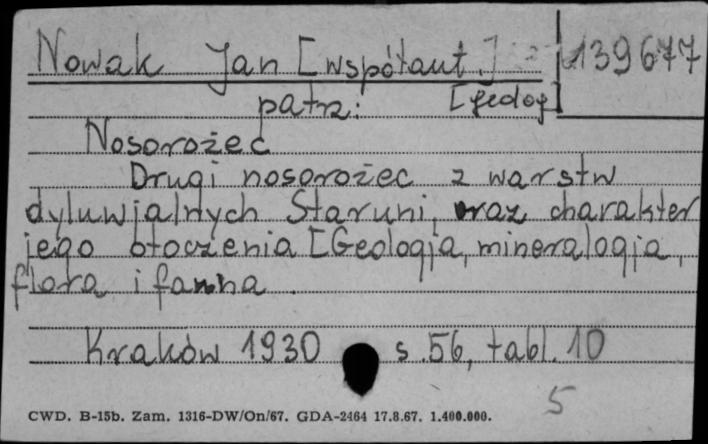 Nowak Jan [współaut.] 139677
patrz: [geolog]
Nosorożec
Drugi nosorożec z warstw
dyluwjalnych Staruni, oraz charakter
jego otoczenia [Geologja, mineralogja,
flora i fauna.
Kraków 1930 s. 56, tabl. 10
5
CWD. B-15b. Zam. 1316-DW/On/67. GDA-2464 17.8.67. 1.400.000.